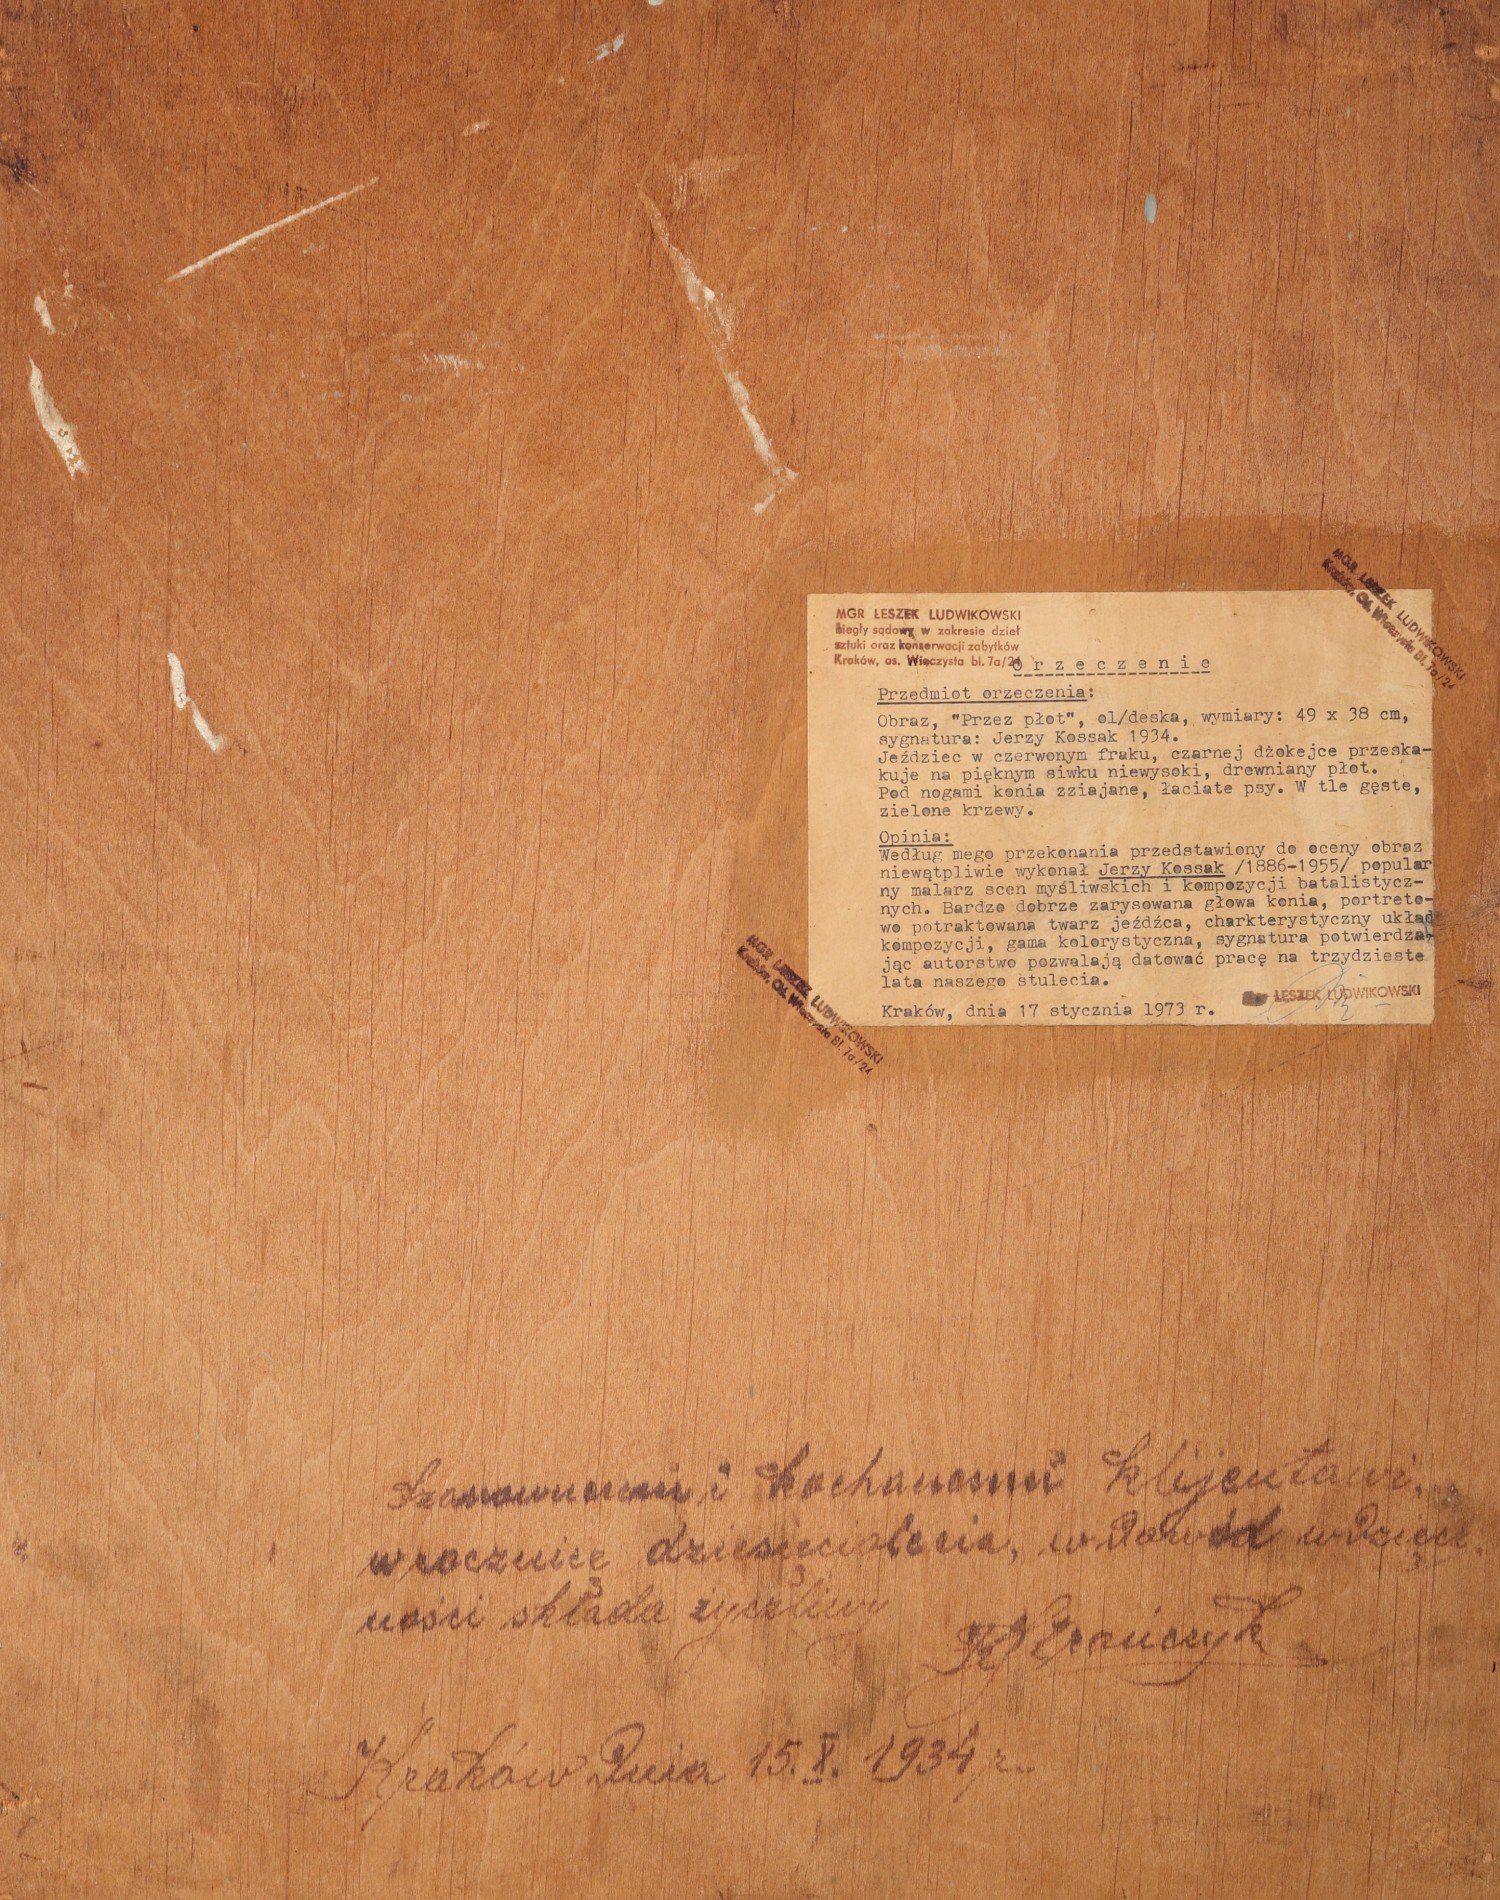 MGR LESZEK LUDWIKOWSKI
Kraków, Os. Wieczysta Bl. 7a/24
MGR LESZEK LUDWIKOWSKI
biegły sądowy w zakresie dzieł
sztuki oraz konserwacji zabytków
Kraków, os. Wieczysta bl. 7a/24
Orzeczenie
Przedmiot orzeczenia:
Obraz, "Przez płot", ol/deska, wymiary: 49 x 38 cm,
sygnatura: Jerzy Kossak 1934.
Jeździec w czerwonym fraku, czarnej dżokejce przeska-
kuje na pięknym siwku niewysoki, drewniany płot.
Pod nogami konia zziajane, łaciate psy. W tle gęste,
zielone krzewy.
Opinia:
Według mego przekonania przedstawiony do oceny obraz
niewątpliwie wykonał Jerzy Kossak /1886-1955/ popular
ny malarz scen myśliwskich i kompozycji batalistycz-
nych. Bardzo dobrze zarysowana głowa konia, portreto-
wo potraktowana twarz jeźdźca, charkterystyczny układ
kompozycji, gama kolorystyczna, sygnatura potwierdza-
jąc autorstwo pozwalają datować pracę na trzydzieste
lata naszego stulecia.
Kraków, dnia 17 stycznia 1973 r.
Mgr LESZEK LUDWIKOWSKI
MGR LESZEK LUDWIKOWSKI
Kraków, Os. Wieczysta Bl. 7a/24
Szanownemu i kochanemu klijentowi.
w rocznicę dziesięciolecia, w dowód wdzięcz-
ności składa życzliwy
Kraków Dnia 15.X. 1934 r.